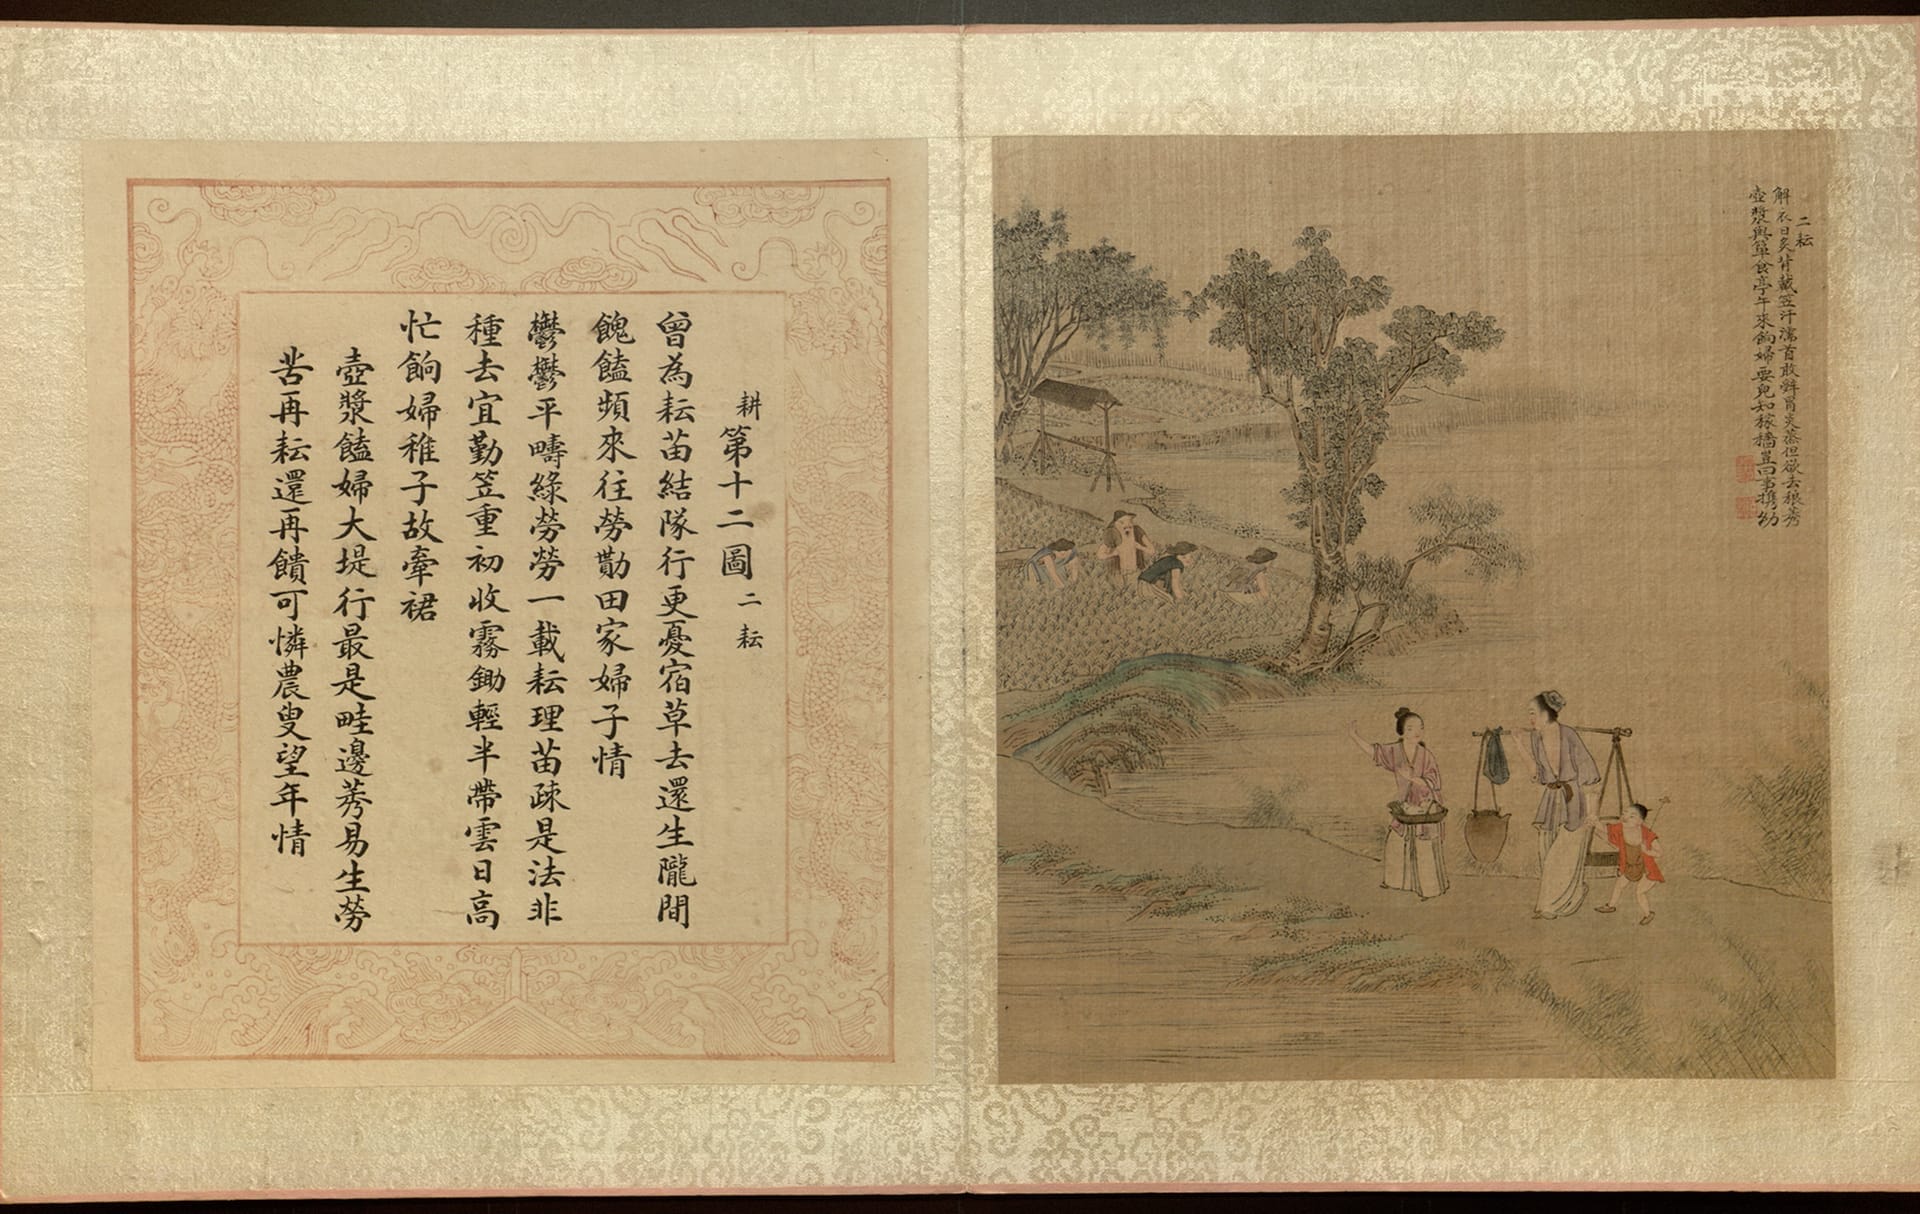 二耘
解衣日炙背戴笠汗濡首敢辭冒炎蒸但欲去稂莠
壺漿與簞食亭午來餉婦要兒知稼穡豈曰事携幼
耕第十二圖二耘
曾為耘苗結隊行更憂宿草去還生隴間
餽饁頻來往勞勩田家婦子情
鬱鬱平疇綠勞勞一載耘理苗疎是法非
種去宜勤笠重初收霧鋤輕半帶雲日高
忙餉婦稚子故牽裙
壺漿饁婦大堤行最是畦邊莠易生勞
苦再耘還再饋可憐農叟望年情